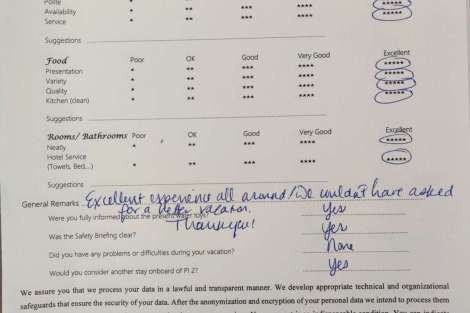 Polite * ** *** **** *****
Availability * ** *** **** *****
Service * ** *** **** *****
Suggestions
Food Poor OK Good Very Good Excellent
Presentation * ** *** **** *****
Variety * ** *** **** *****
Quality * ** *** **** *****
Kitchen (clean) * ** *** **** *****
Suggestions
Rooms/ Bathrooms Poor OK Good Very Good Excellent
Neatly * ** *** **** *****
Hotel Service
(Towels, Bed,...) * ** *** **** *****
Suggestions
General Remarks Excellent experience all around! We couldn't have asked
for a better vacation.
Were you fully informed about the present water toys? Yes
Thank you!
Was the Safety Briefing clear? Yes
Did you have any problems or difficulties during your vacation? None
Would you consider another stay onboard of PI 2? Yes
We assure you that we process your data in a lawful and transparent manner. We develop appropriate technical and organizational
safeguards that ensure the security of your data. After the anonymization and encryption of your personal data we intend to process them